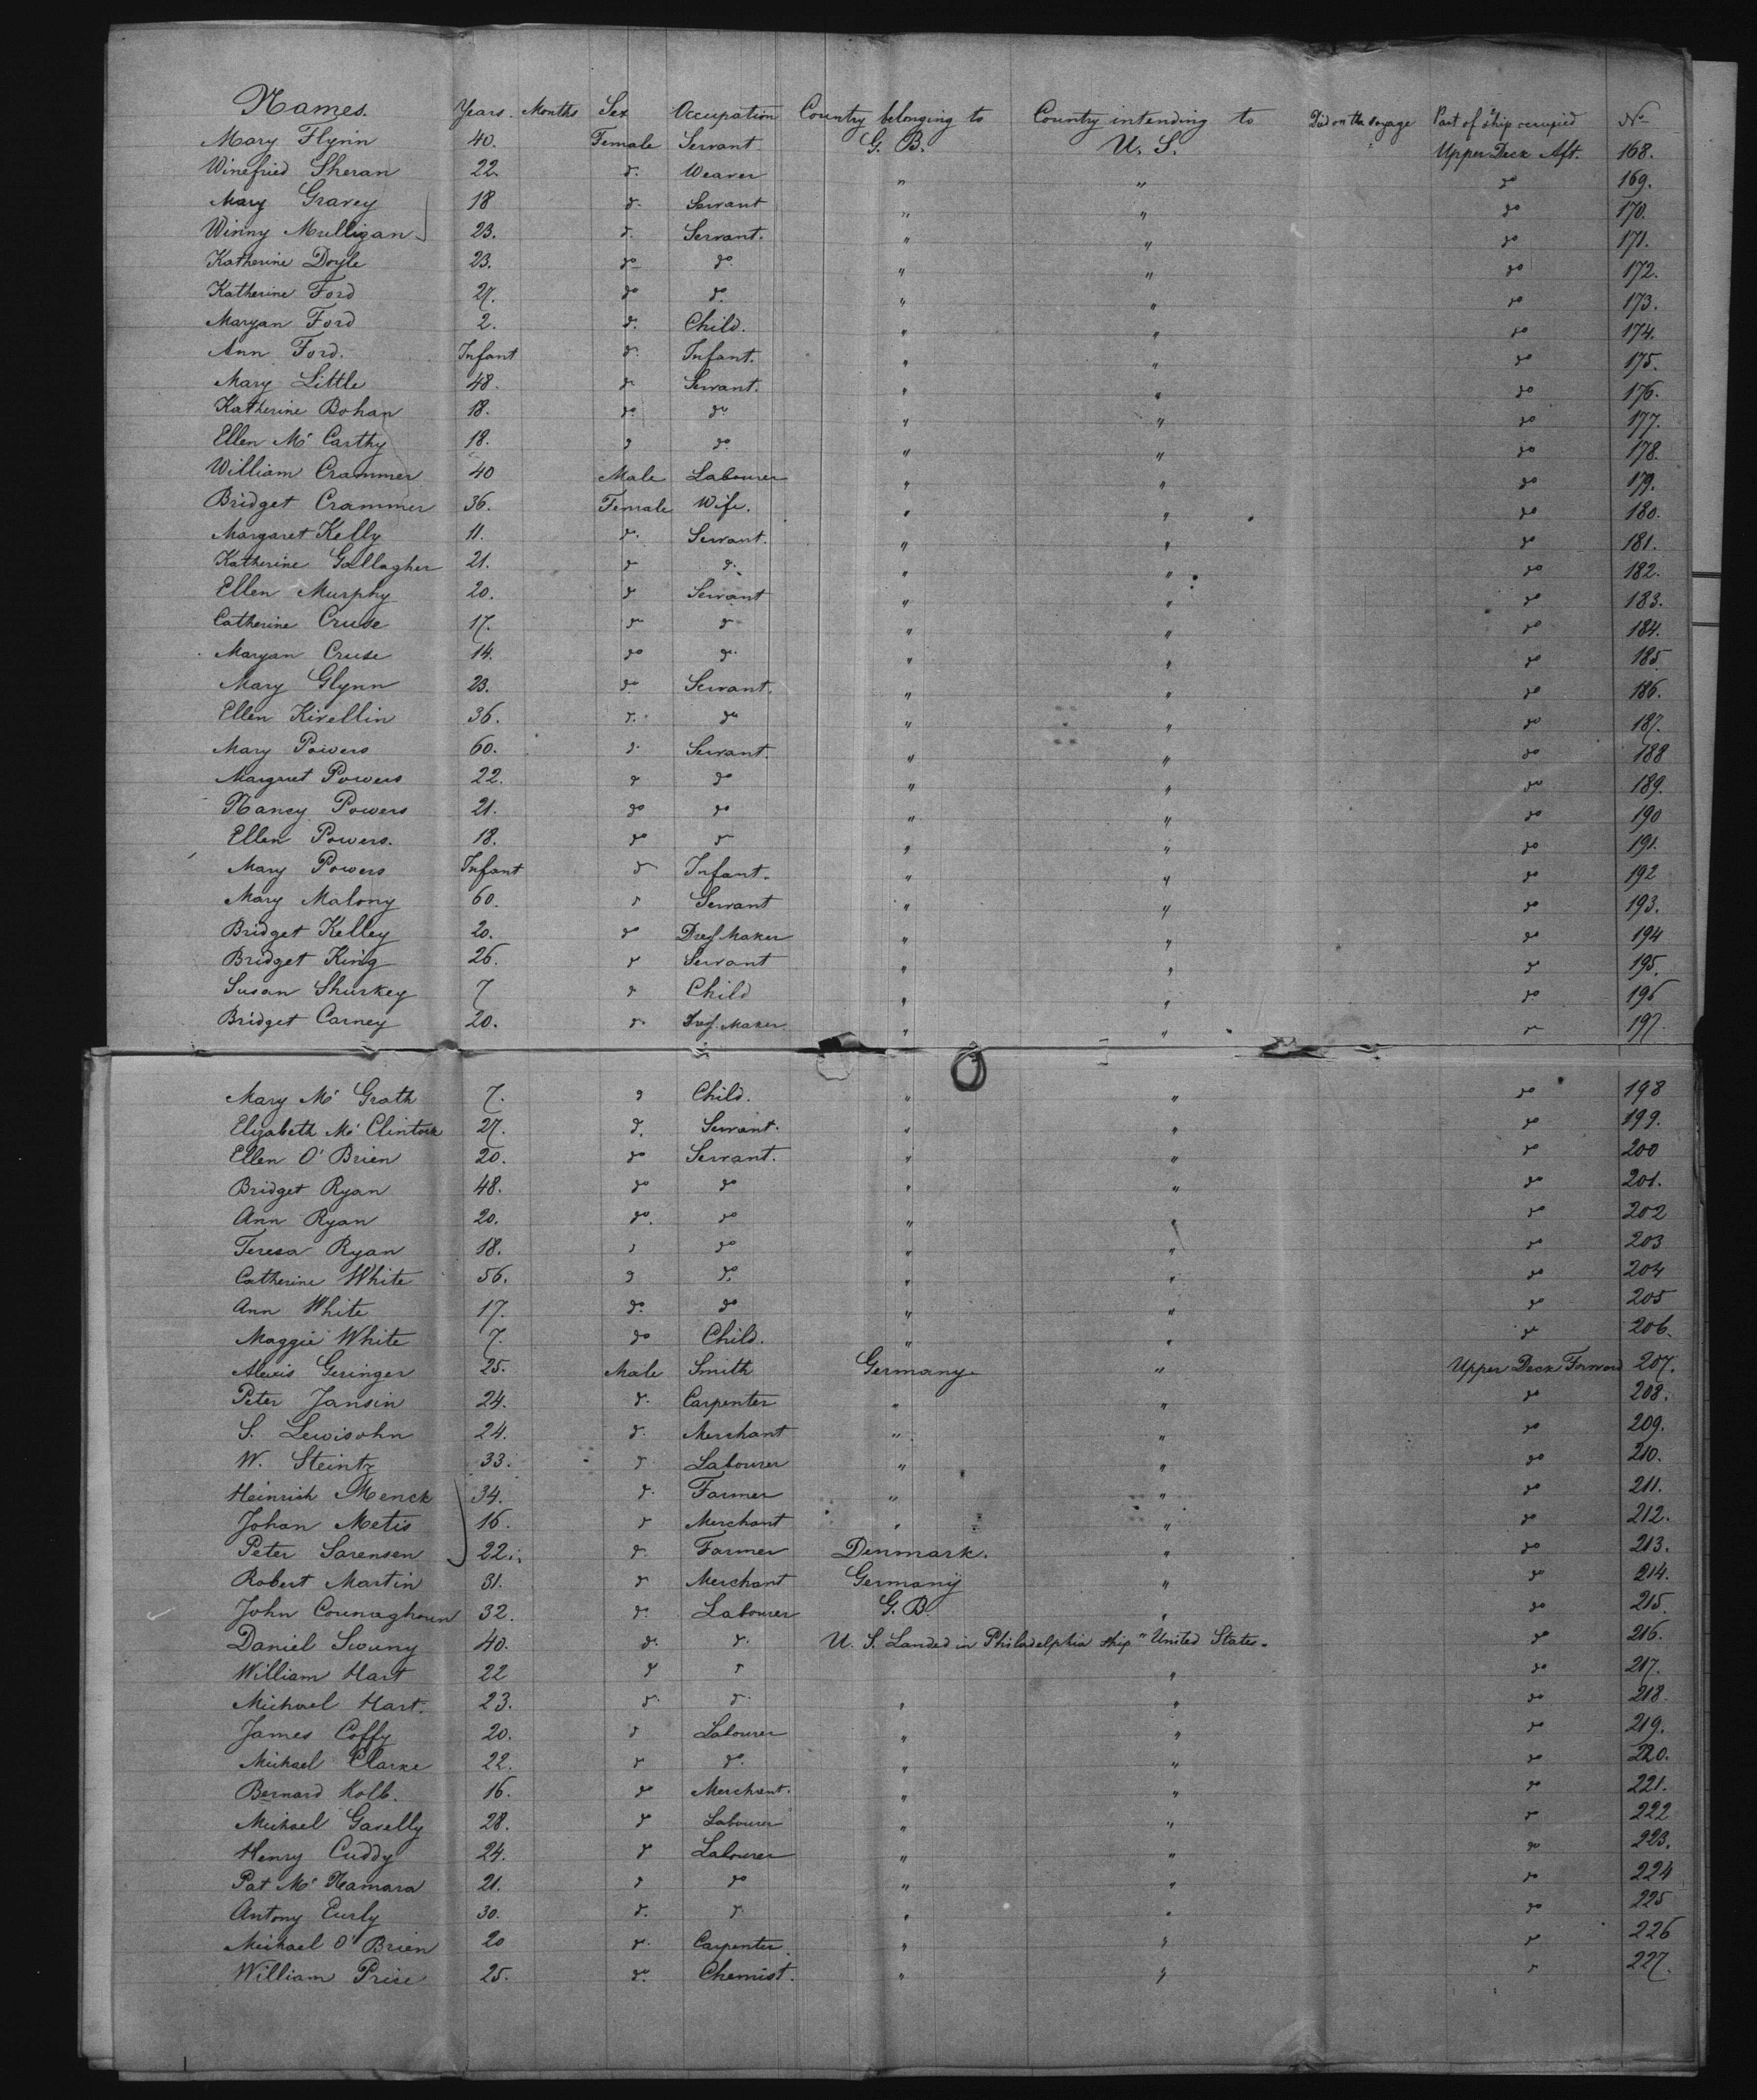 Names. Years. Months Sex Occupation Country belonging to Country intending to Died on the voyage Part of ship occupied No
Mary Flynn 40. Female Servant G. B. U. S. Upper Deck Aft. 168.
Winefried Sheran 22. do. Weaver " " do 169.
Mary Gravey 18 do. Servant " " do 170.
Winny Mulligan 23. do. Servant. " " do 171.
Katherine Doyle 23. do do. " " do 172.
Katherine Ford 27. do do. " " do 173.
Maryan Ford 2. do. Child. " " do 174.
Ann Ford. Infant do. Infant. " " do 175.
Mary Little 48. do Servant. " " do 176.
Katherine Bohan 18. do. do " " do 177.
Ellen Mc Carthy 18. do do. " " do 178.
William Crammer 40 Male Labourer " " do 179.
Bridget Crammer 36. Female Wife. " " do 180.
Margaret Kelly 11. do. Servant. " " do 181.
Katherine Gallagher 21. do do. " " do 182.
Ellen Murphy 20. do Servant " " do 183.
Catherine Cruse 17. do do " " do 184.
Maryan Cruse 14. do do. " " do 185.
Mary Glynn 23. do Servant. " " do 186.
Ellen Kivellin 36. do. do " " do 187.
Mary Powers 60. do. Servant. " " do 188
Margaret Powers 22. do do " " do 189.
Nancy Powers 21. do do " " do 190
Ellen Powers. 18. do do " " do 191.
Mary Powers Infant do Infant. " " do 192
Mary Malony 60. do Servant " " do 193.
Bridget Kelley 20. do Dress Maker " " do 194
Bridget King 26. do Servant " " do 195.
Susan Shurkey 7 do Child " " do 196
Bridget Carney 20. do. Dress Maker " " do 197.
Mary Mc Grath 7. do Child. " " do 198
Elizabeth Mc Clintock 27. do. Servant. " " do 199.
Ellen O'Brien 20. do Servant. " " do 200
Bridget Ryan 48. do do " " do 201.
Ann Ryan 20. do. do " " do 202
Teresa Ryan 18. do do " " do 203
Catherine White 56. do do. " " do 204
Ann White 17. do. do " " do 205
Maggie White 7. do Child. " " do 206.
Alexis Geringer 25. Male Smith Germany " Upper Deck Forward 207.
Peter Jansin 24. do. Carpenter " " do 208.
S. Lewisohn 24. do. Merchant " " do 209.
W. Steintz 33. do Labourer " " do 210.
Heinrich Menck 34. do. Farmer " " do 211.
Johan Metis 16. do Merchant " " do 212.
Peter Sarensen 22. do. Farmer Denmark. " do 213.
Robert Martin 31. do Merchant Germany " do 214.
John Counaghoun 32. do. Labourer G. B. " do 215.
Daniel Swuny 40. do. do. U. S. Landed in Philadelphia ship "United States. do 216.
William Hart 22 do do " do 217.
Michael Hart. 23. do. do. " " do 218.
James Coffy 20. do Labourer " " do 219.
Michael Clarke 22. do do. " " do 220.
Bernard Kolb. 16. do Merchant. " " do 221.
Michael Gavelly 28. do Labourer " " do 222
Henry Cuddy 24. do Labourer " " do 223.
Pat Mc Namara 21. do do " " do 224
Antony Eurly 30. do. do. " " do 225
Michael O'Brien 20 do. Carpenter. " " do 226
William Price 25. do. Chemist. " " do 227.